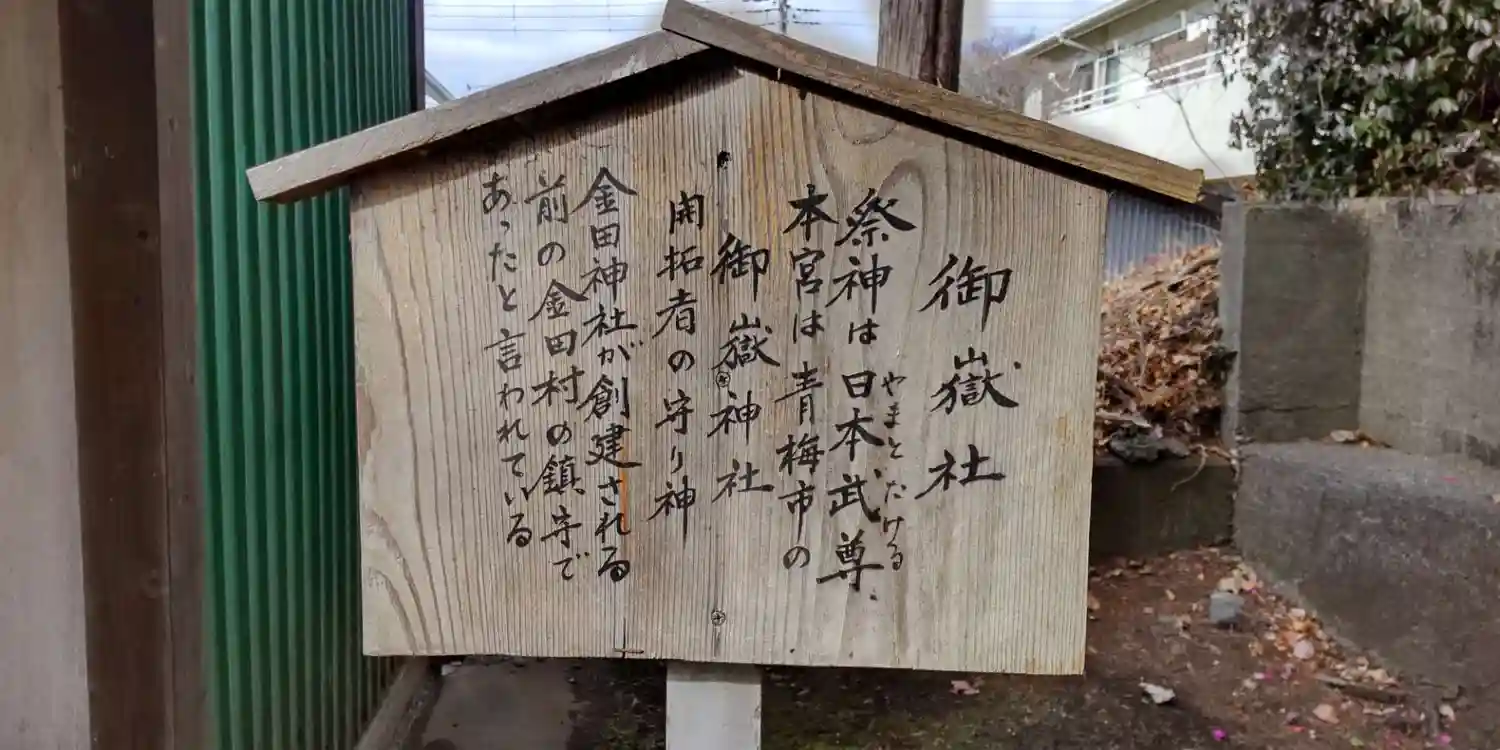 御嶽社
祭神は日本武尊
やまとたける
本宮は青梅市の
御嶽神社
開拓者の守り神
金田神社が創建される
前の金田村の鎮守で
あったと言われている